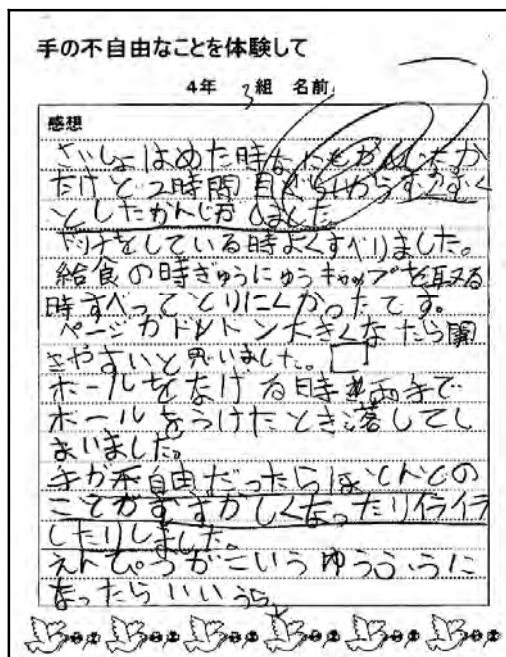 手の不自由なことを体験して
4年 3組 名前
感想
さいしょはめた時なにもかんじなか
だけど2時間目ぐらいからすずずく
としたかんじがしました
をしている時よくすべりました。
給食の時ぎゅうにゅうキャップを取る
時すべってとりにくかったです。
ページがドンドン大きくなたら開
きやすいと思いました。
ボールをなげる時 両手で
ボールをうけたとき落してし
まいました。
手が不自由だったらほとんどの
ことがむずかしくなったりイライラ
したりしました。
えんぴつがこいうゆうふうに
なったらいい